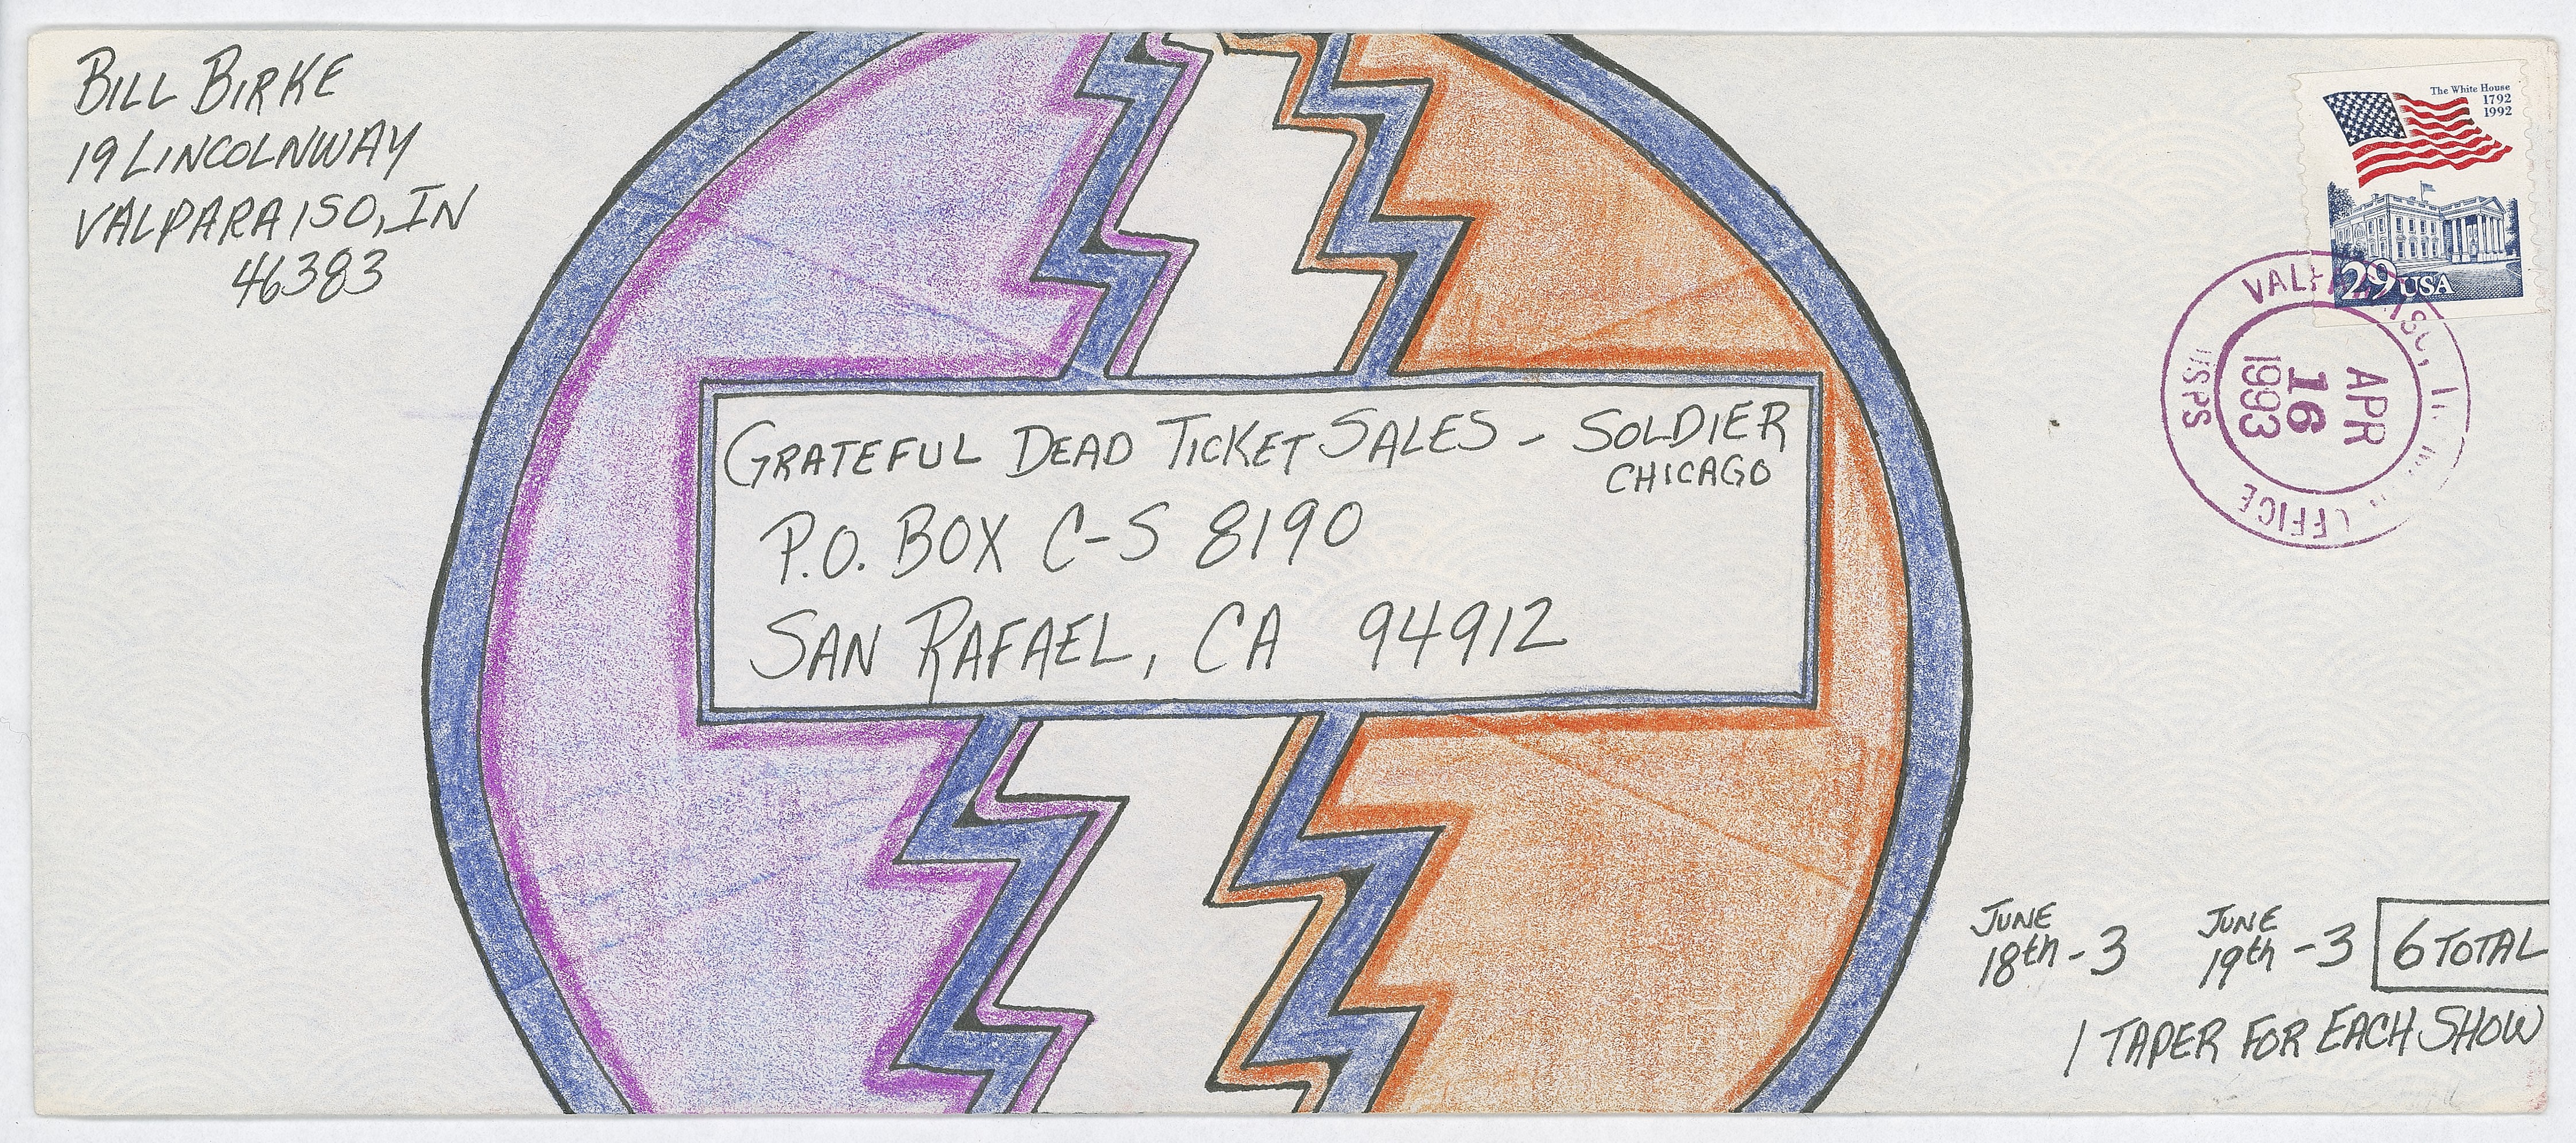 BILL BIRKE
19 LINCOLNWAY
VALPARAISO, IN
46383
The White House
1792
1992
29 USA
APR
16
1993
USPS
GRATEFUL DEAD TICKET SALES - SOLDIER
CHICAGO
P.O. BOX C-S 8190
SAN RAFAEL, CA 94912
JUNE
18th - 3
JUNE
19th - 3
6 TOTAL
1 TAPER FOR EACH SHOW